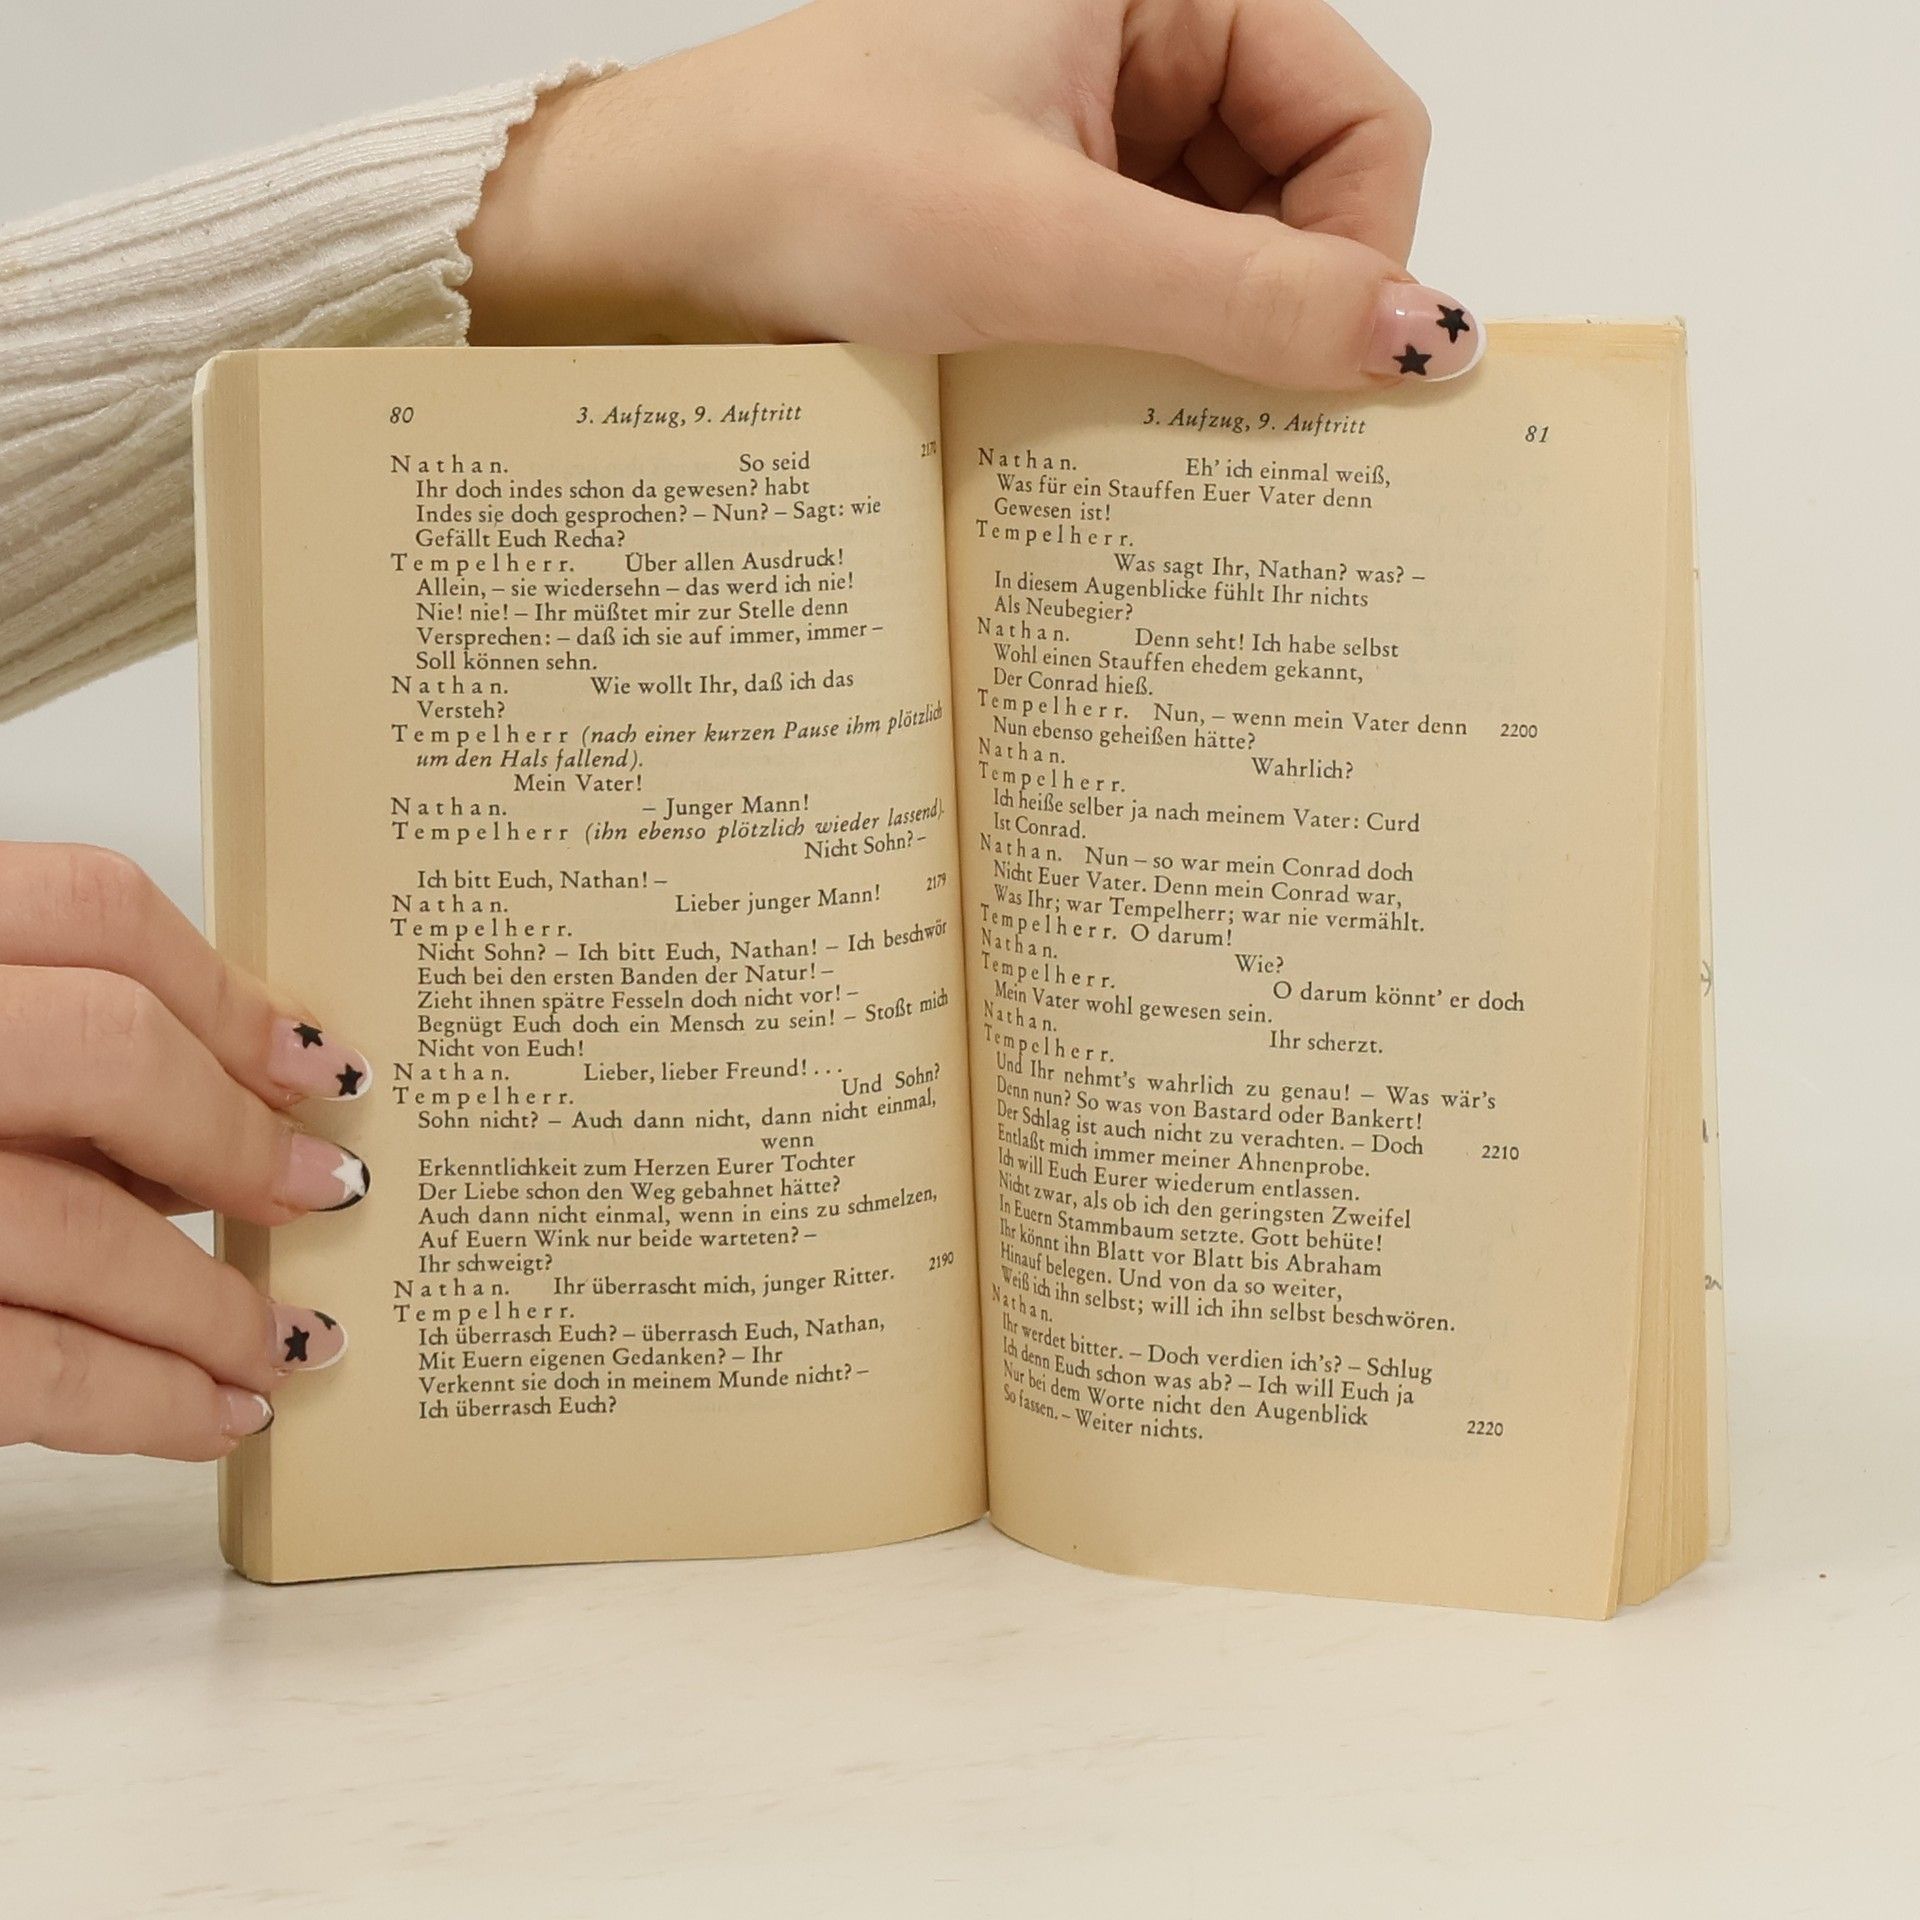 80 3. Aufzug, 9. Auftritt
Nathan. So seid 2170
Ihr doch indes schon da gewesen? habt
Indes sie doch gesprochen? – Nun? – Sagt: wie
Gefällt Euch Recha?
Tempelherr. Über allen Ausdruck!
Allein, – sie wiedersehn – das werd ich nie!
Nie! nie! – Ihr müßtet mir zur Stelle denn
Versprechen: – daß ich sie auf immer, immer –
Soll können sehn.
Nathan. Wie wollt Ihr, daß ich das
Versteh?
Tempelherr (nach einer kurzen Pause ihm plötzlich
um den Hals fallend).
Mein Vater!
Nathan. – Junger Mann!
Tempelherr (ihn ebenso plötzlich wieder lassend).
Nicht Sohn? –
Ich bitt Euch, Nathan! – 2179
Nathan. Lieber junger Mann!
Tempelherr.
Nicht Sohn? – Ich bitt Euch, Nathan! – Ich beschwör
Euch bei den ersten Banden der Natur! –
Zieht ihnen spätre Fesseln doch nicht vor! –
Begnügt Euch doch ein Mensch zu sein! – Stoßt mich
Nicht von Euch!
Nathan. Lieber, lieber Freund! . . .
Tempelherr. Und Sohn?
Sohn nicht? – Auch dann nicht, dann nicht einmal,
wenn
Erkenntlichkeit zum Herzen Eurer Tochter
Der Liebe schon den Weg gebahnet hätte?
Auch dann nicht einmal, wenn in eins zu schmelzen,
Auf Euern Wink nur beide warteten? –
Ihr schweigt? 2190
Nathan. Ihr überrascht mich, junger Ritter.
Tempelherr.
Ich überrasch Euch? – überrasch Euch, Nathan,
Mit Euern eigenen Gedanken? – Ihr
Verkennt sie doch in meinem Munde nicht? –
Ich überrasch Euch?
3. Aufzug, 9. Auftritt 81
Nathan. Eh' ich einmal weiß,
Was für ein Stauffen Euer Vater denn
Gewesen ist!
Tempelherr.
Was sagt Ihr, Nathan? was? –
In diesem Augenblicke fühlt Ihr nichts
Als Neubegier?
Nathan. Denn seht! Ich habe selbst
Wohl einen Stauffen ehedem gekannt,
Der Conrad hieß.
Tempelherr. Nun, – wenn mein Vater denn 2200
Nun ebenso geheißen hätte?
Nathan. Wahrlich?
Tempelherr.
Ich heiße selber ja nach meinem Vater: Curd
Ist Conrad.
Nathan. Nun – so war mein Conrad doch
Nicht Euer Vater. Denn mein Conrad war,
Was Ihr; war Tempelherr; war nie vermählt.
Tempelherr. O darum!
Nathan. Wie?
Tempelherr. O darum könnt' er doch
Mein Vater wohl gewesen sein.
Nathan. Ihr scherzt.
Tempelherr.
Und Ihr nehmt's wahrlich zu genau! – Was wär's
Denn nun? So was von Bastard oder Bankert!
Der Schlag ist auch nicht zu verachten. – Doch 2210
Entlaßt mich immer meiner Ahnenprobe.
Ich will Euch Eurer wiederum entlassen.
Nicht zwar, als ob ich den geringsten Zweifel
In Euern Stammbaum setzte. Gott behüte!
Ihr könnt ihn Blatt vor Blatt bis Abraham
Hinauf belegen. Und von da so weiter,
Weiß ich ihn selbst; will ich ihn selbst beschwören.
Nathan.
Ihr werdet bitter. – Doch verdien ich's? – Schlug
Ich denn Euch schon was ab? – Ich will Euch ja
Nur bei dem Worte nicht den Augenblick 2220
So fassen. – Weiter nichts.